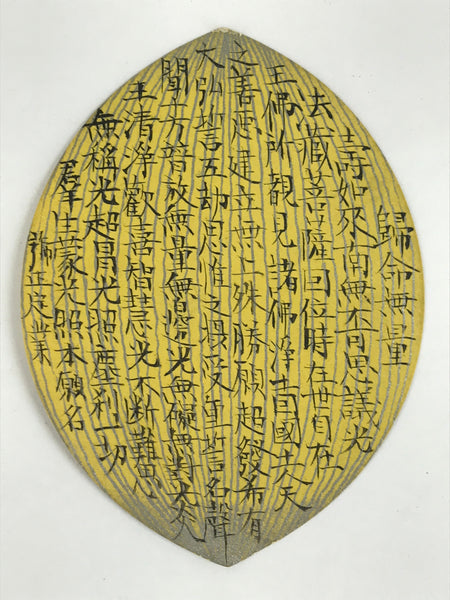 歸命無量
壽如來南無不可思議光
法藏菩薩因位時在世自在
王佛所覩見諸佛淨土因國土人天
之善惡建立無上殊勝願超發希有
大弘誓五劫思惟之攝受重誓名聲
聞十方普放無量無邊光無礙無對光炎
王清淨歡喜智慧光不斷難思
無稱光超日月光照塵刹一切
羣生蒙光照本願名
號正定業